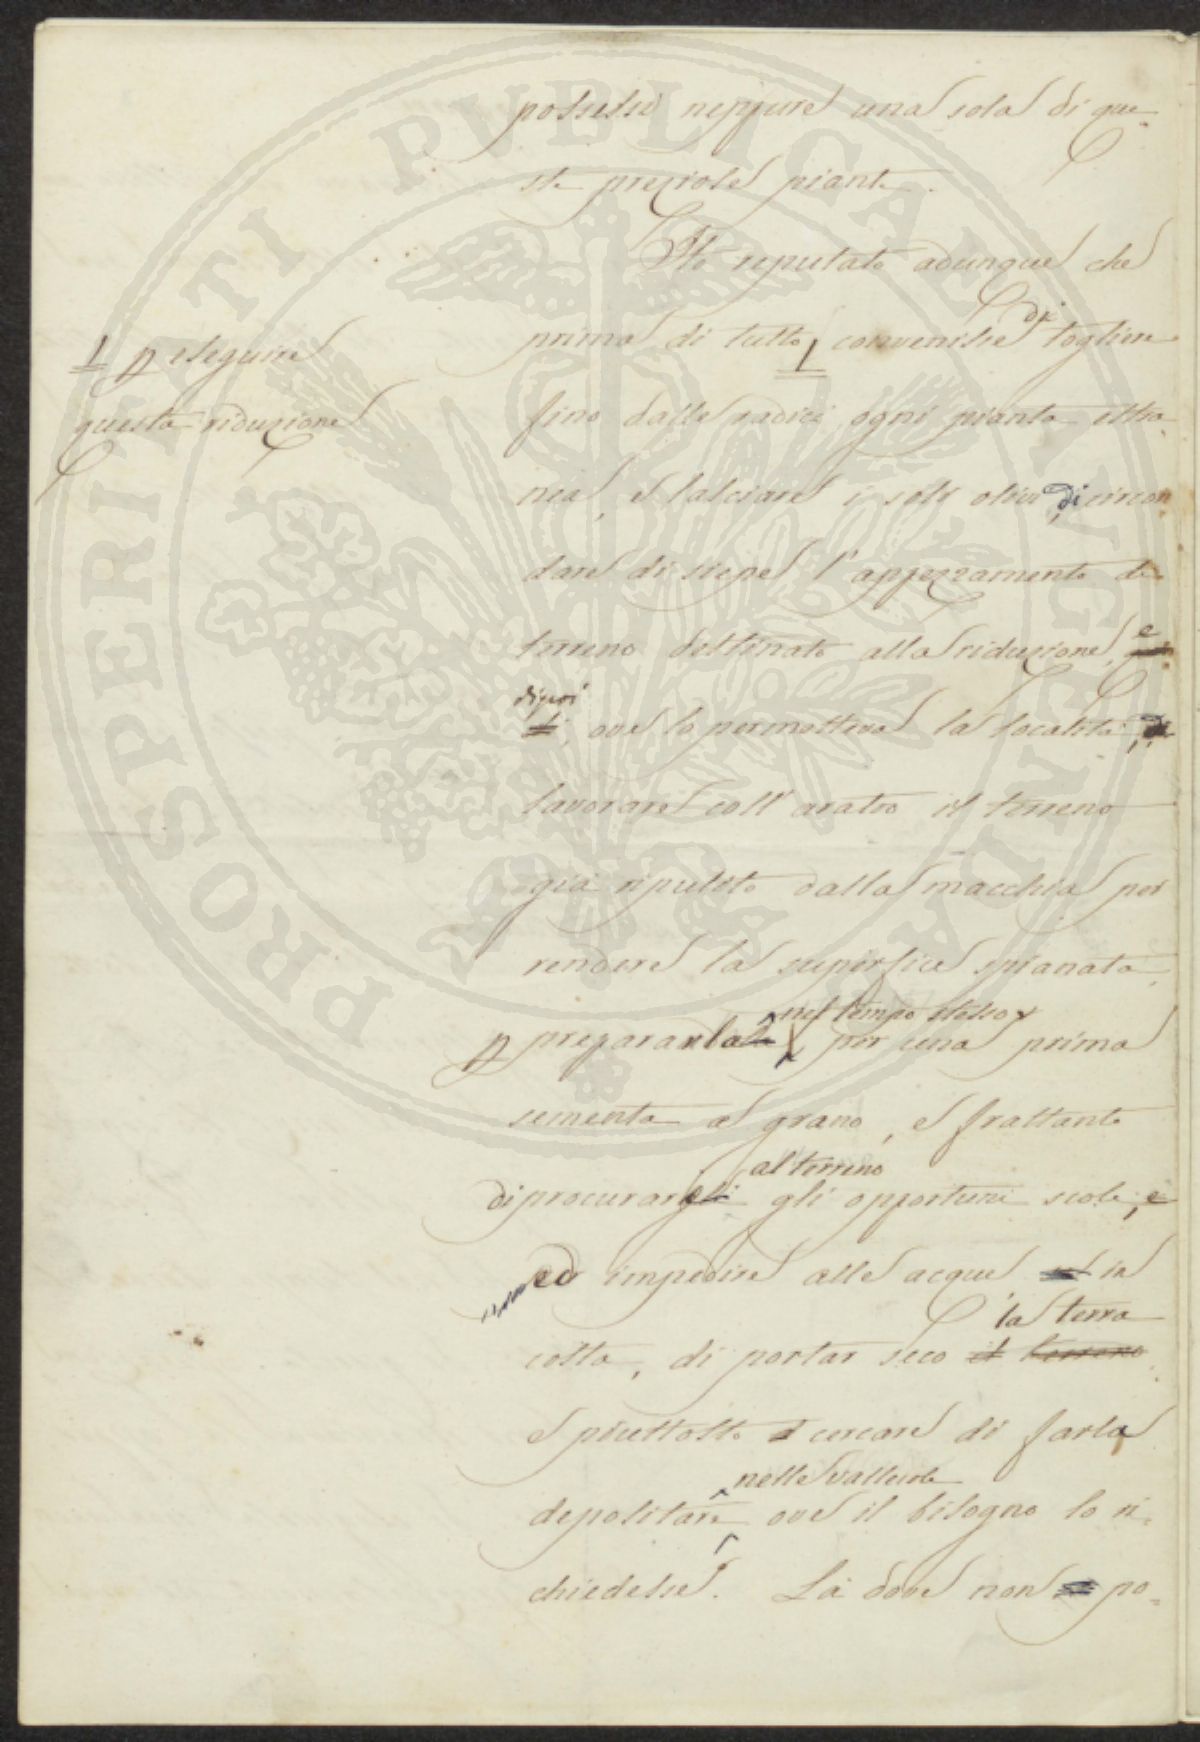 possiede neppure una sola di que-
ste preziose piante.
Ho reputato adunque che
prima di tutto convenisse di togliere
1 p eseguire
questa riduzione
fino dalle radici ogni pianta estra-
nea, e lasciare i soli olivi, di circon-
dare di siepe l'appezzamento di
terreno destinato alla riduzione, e
dipoi
di, ove lo permetteva la località, di
lavorare coll'aratro il terreno
già ripulito dalla macchia per
rendere la superfice spianata
nel tempo stesso
p prepararla per una prima
sementa a grano, e frattanto
al terreno
di procurargli gli opportuni scoli, e
ed impedire alle acque in
la terra
colta, di portar seco il terreno
e piuttosto cercare di farla
nelle vallicole
depositare ove il bisogno lo ri-
chiedesse. Là dove non po-
PROSPERITATI PUBLICAE AUGENDAE